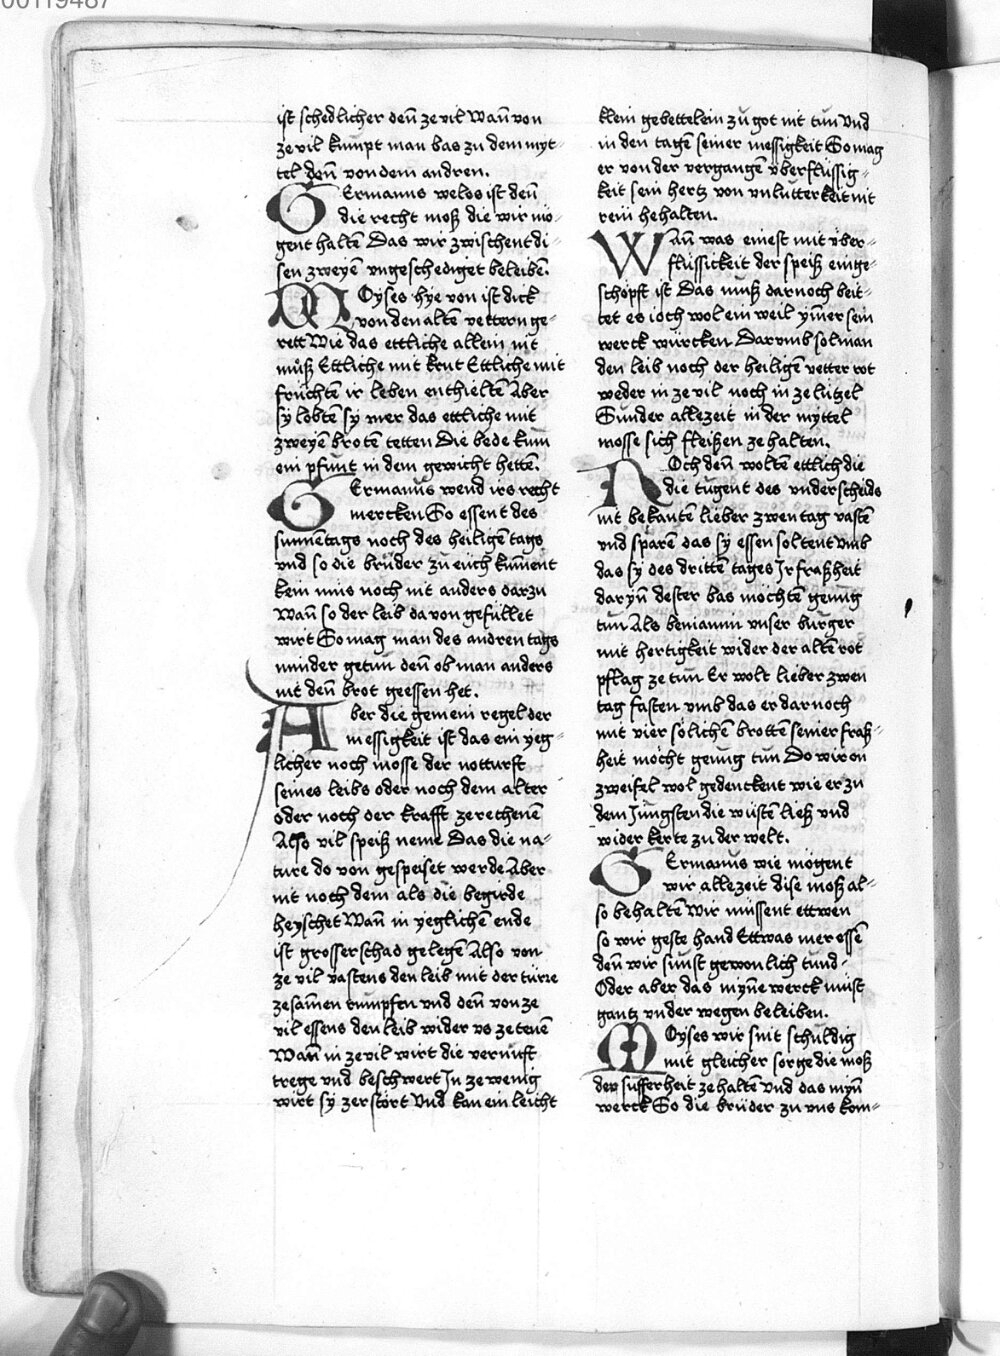 00119487
ist schedlicher deñ ze vil Wañ von
ze vil kumpt man bas zu dem myt-
tel deñ von dem andren.
Germanus weles ist deñ
die recht moß die wir mö-
gent haltē Das wir zwischent di-
sen zweyē vngeschediget beleibē.
Moyses hye von ist dick
von den altē vettern ge-
rett Wie das ettliche allein nit
můß Ettliche mit krut Ettliche mit
früchtē ir leben enthieltē Aber
sy lobtē sy mer das ettliche mit
zweyē brotē tetten Die bede kum
ein pfunt in dem gewicht hettē.
Germanus wend irs recht
mercken So essent des
sunnētags noch des heiligē tags
vnd so die brüder zu eüch kum̄ent
kein mus noch nit anders darzu
Wañ so der leib da von gefüllet
wirt So mag man des andren tags
minder getun deñ ob man anders
nit deñ brot geessen het.
Aber die gemein regel der
messigkeit ist das ein yeg-
licher noch mosse der notturft
seines leibs oder noch dem alter
oder noch der krafft ze rechenē
Also vil speiß neme Das die na-
ture do von gespeiset werde Aber
nit noch dem als die begirde
heyschet Wañ in yeglichē ende
ist grosser schad gelegē Also von
ze vil vastens den leib mit der türre
zesam̄en rumpfen vnd deñ von ze
vil essens den leib wider vs ze tenē
Wañ in ze vil wirt die vernuft
trege vnd beschwert In ze wenig
wirt sy zerstört Vnd kan ein leicht
klein gebettelein zu got nit tun Vnd
in den tagē seiner messigkeit So mag
er von der vergangē v̈berflüssig-
keit sein hertz von vnlutterkeit nit
rein behalten.
Wañ was einest mit v̈ber-
flüssickeit der speiß einge-
schöpft ist Das muß darnoch beit-
tet es ioch wol ein weil ym̄er sein
werck würcken Darvmb sol man
den leib noch der heiligē vetter rot
weder in ze vil noch in ze lützel
Sunder allezeit in der myttel
mosse sich fleißen ze halten.
Noch deñ woltē ettlich die
die tugent des vnderscheids
nit bekanten lieber zwen tag vastē
vnd sparē das sy essen soltent Vmb
das sy des drittē tages Ir fraßheit
dar yñ dester bas möchtē genug
tun Als beniamin vnser burger
mit hertigkeit wider der altē rot
pflag ze tun Er wolt lieber zwen
tag fasten vmb das er darnoch
mit vier sölichē brotten seiner fraß-
heit möcht genug tun Do wir on
zweifel wol gedenckent wie er zu
dem Jüngsten die wüstē ließ vnd
wider kerte zu der welt.
Germanus wie mögent
wir allezeit dise moß al-
so behaltē Wir müssent ettwen
so wir geste hand Ettwas mer essē
deñ wir sunst gewonlich tund-
Oder aber das myñe werck müst
gantz vnder wegen beleiben.
Moyses wir sint schuldig
mit gleicher sorge die moß
der sufferheit ze halten Vnd das myñ
werck So die brüder zu vns kom-